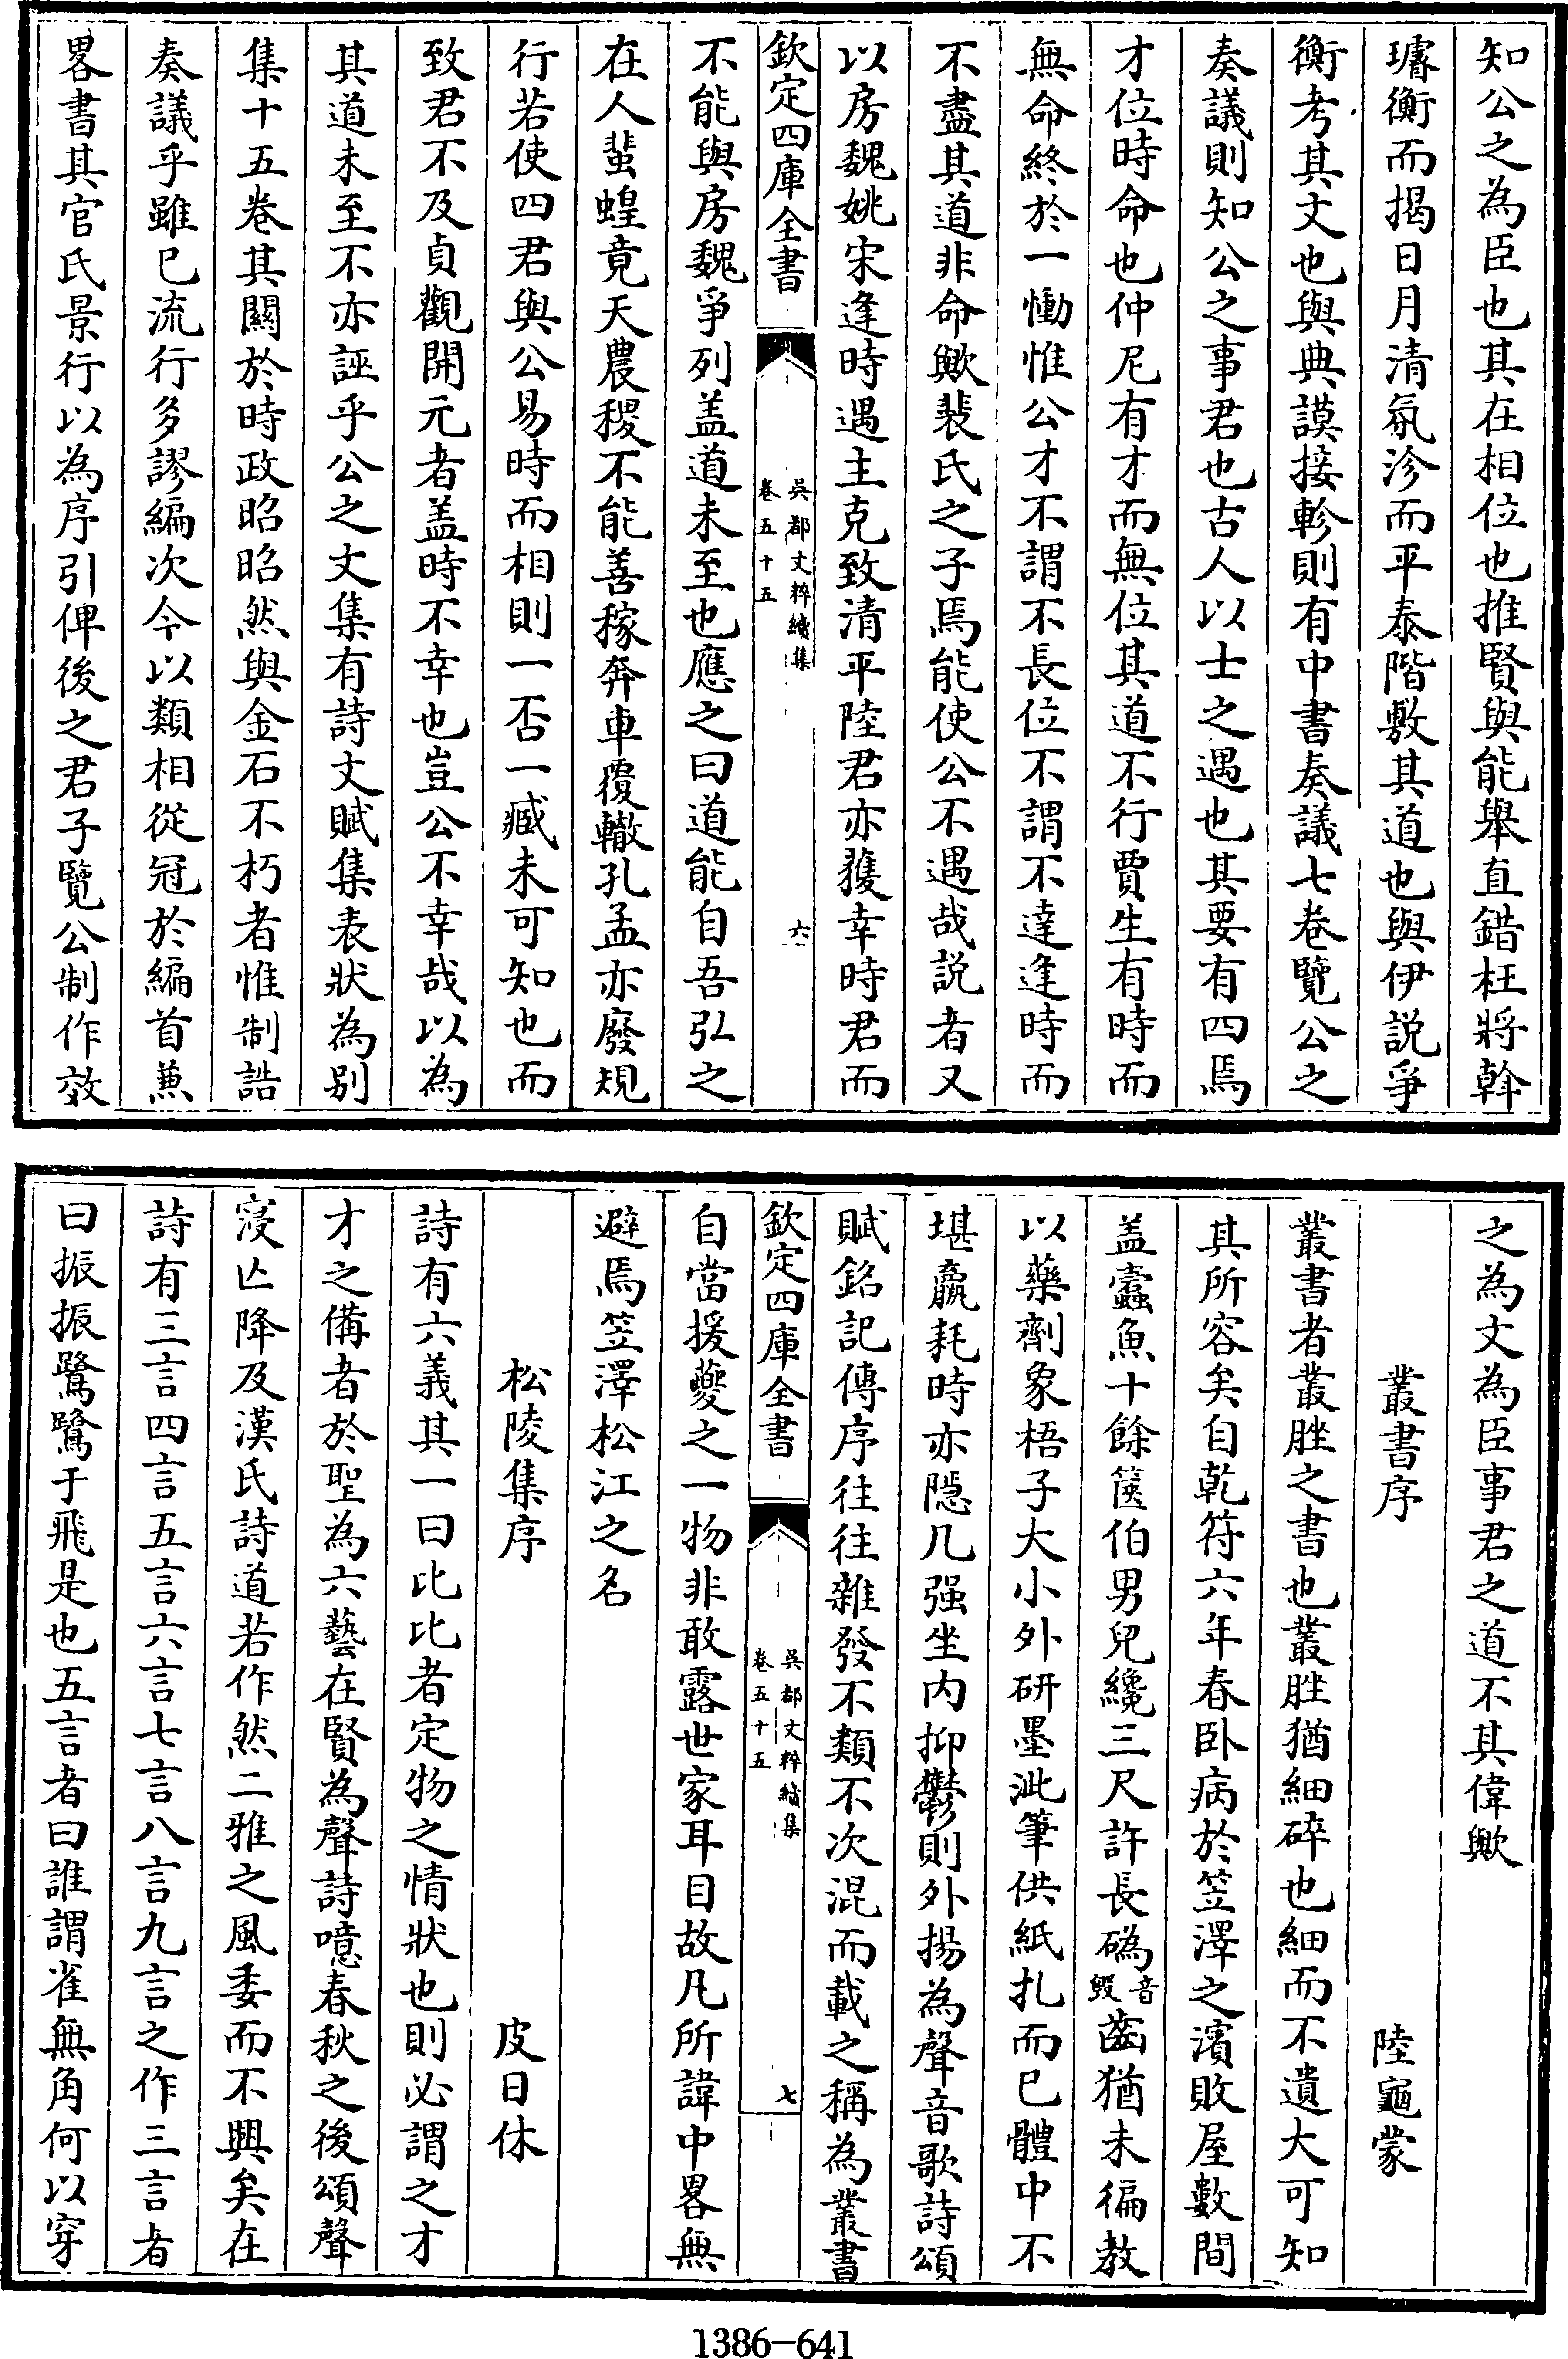 知公之為臣也其在相位也推賢與能舉直錯枉將斡
璿衡而揭日月清氛沴而平泰階敷其道也與伊説爭
衡考其文也與典謨接軫則有中書奏議七卷覽公之
奏議則知公之事君也古人以士之遇也其要有四焉
才位時命也仲尼有才而無位其道不行賈生有時而
無命終於一慟惟公才不謂不長位不謂不達逢時而
不盡其道非命歟裴氏之子焉能使公不遇哉説者又
以房魏姚宋逢時遇主克致清平陸君亦獲幸時君而
欽定四庫全書
吳都文粹續集
卷五十五
六
不能與房魏爭列盖道未至也應之曰道能自吾弘之
在人蜚蝗竟天農稷不能善稼奔車覆轍孔孟亦廢規
行若使四君與公易時而相則一否一臧未可知也而
致君不及貞觀開元者盖時不幸也豈公不幸哉以為
其道未至不亦誣乎公之文集有詩文賦集表狀為别
集十五卷其闗於時政昭昭然與金石不朽者惟制誥
奏議乎雖已流行多謬編次今以類相從冠於編首兼
畧書其官氏景行以為序引俾後之君子覽公制作效
之為文為臣事君之道不其偉歟
叢書序
陸龜蒙
叢書者叢脞之書也叢脞猶細碎也細而不遺大可知
其所容矣自乾符六年春卧病於笠澤之濱敗屋數間
盖蠹魚十餘篋伯男兒纔三尺許長䃣音毀齒猶未徧教
以藥劑象梧子大小外研墨泚筆供紙扎而已體中不
堪羸耗時亦隱几强坐内抑鬱則外揚為聲音歌詩頌
賦銘記傳序往往雜發不類不次混而載之稱為叢書
欽定四庫全書
吳都文粹續集
卷五十五
七
自當援蘷之一物非敢露世家耳目故凡所諱中畧無
避焉笠澤松江之名
松陵集序
皮日休
詩有六義其一曰比比者定物之情狀也則必謂之才
才之備者於聖為六藝在賢為聲詩噫春秋之後頌聲
寖亡降及漢氏詩道若作然二雅之風委而不興矣在
詩有三言四言五言六言七言八言九言之作三言者
曰振振鷺鷺于飛是也五言者曰誰謂雀無角何以穿
1386-641